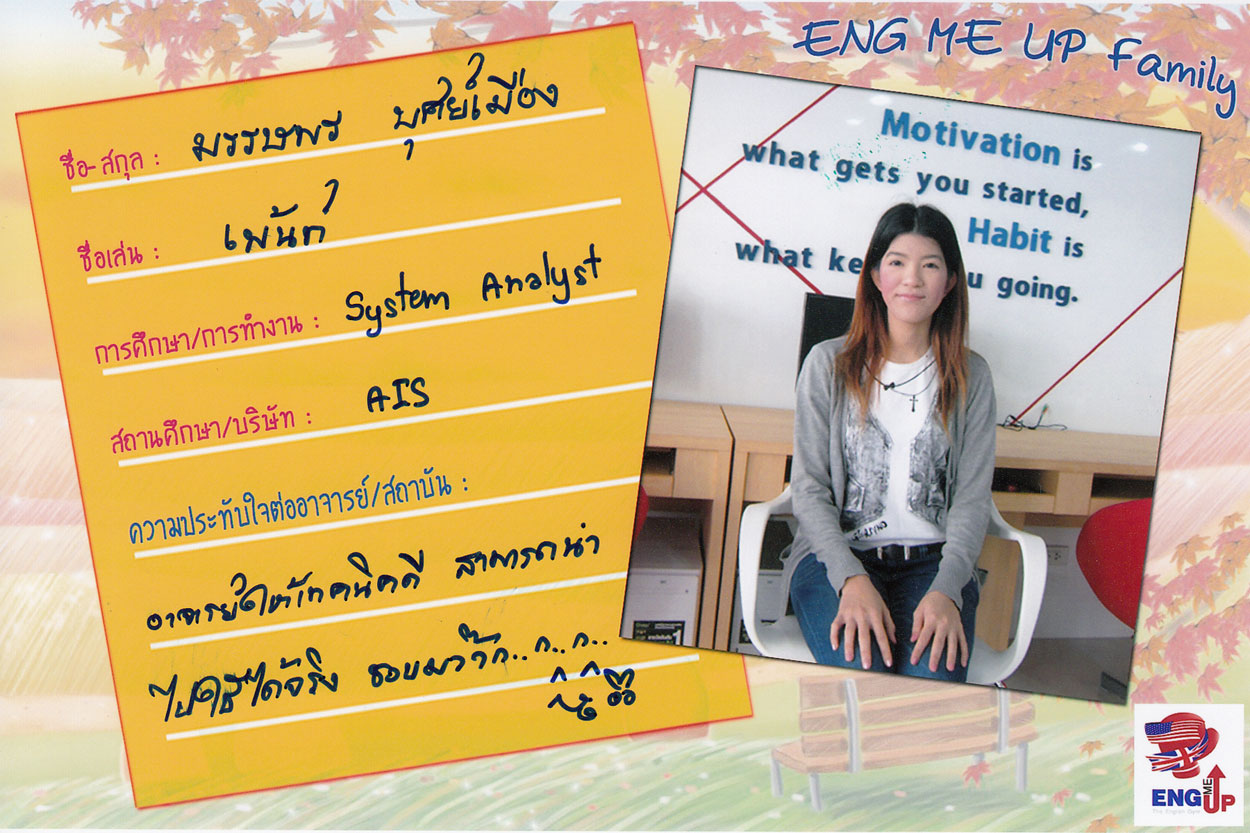 ENG ME UP Family
ชื่อ-สกุล : มรรษพร บุศย์เมือง
ชื่อเล่น : เพ้นท์
การศึกษา/การทำงาน : System Analyst
สถานศึกษา/บริษัท : AIS
ความประทับใจต่ออาจารย์/สถาบัน :
อาจารย์ให้เทคนิคดี สามารถนำ
ไปใช้ได้จริง ชอบมว๊าก..ก..ก..
Motivation is
what gets you started,
Habit is
what ke u going.
ENG ME UP